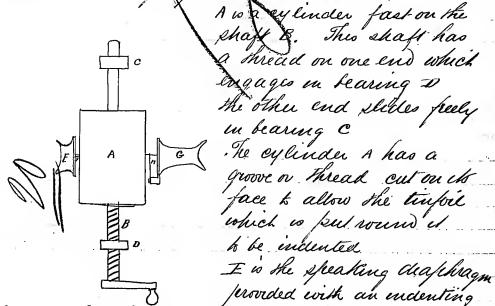 A is a cylinder fast on the
shaft B. This shaft has
a thread on one end which
engages in bearing D
the other end slides freely
in bearing C
The cylinder A has a
groove or thread cut on its
face to allow the tinfoil
which is put round it
to be indented
E is the speaking diaphragm
provided with an indenting
C
E
A
G
B
D